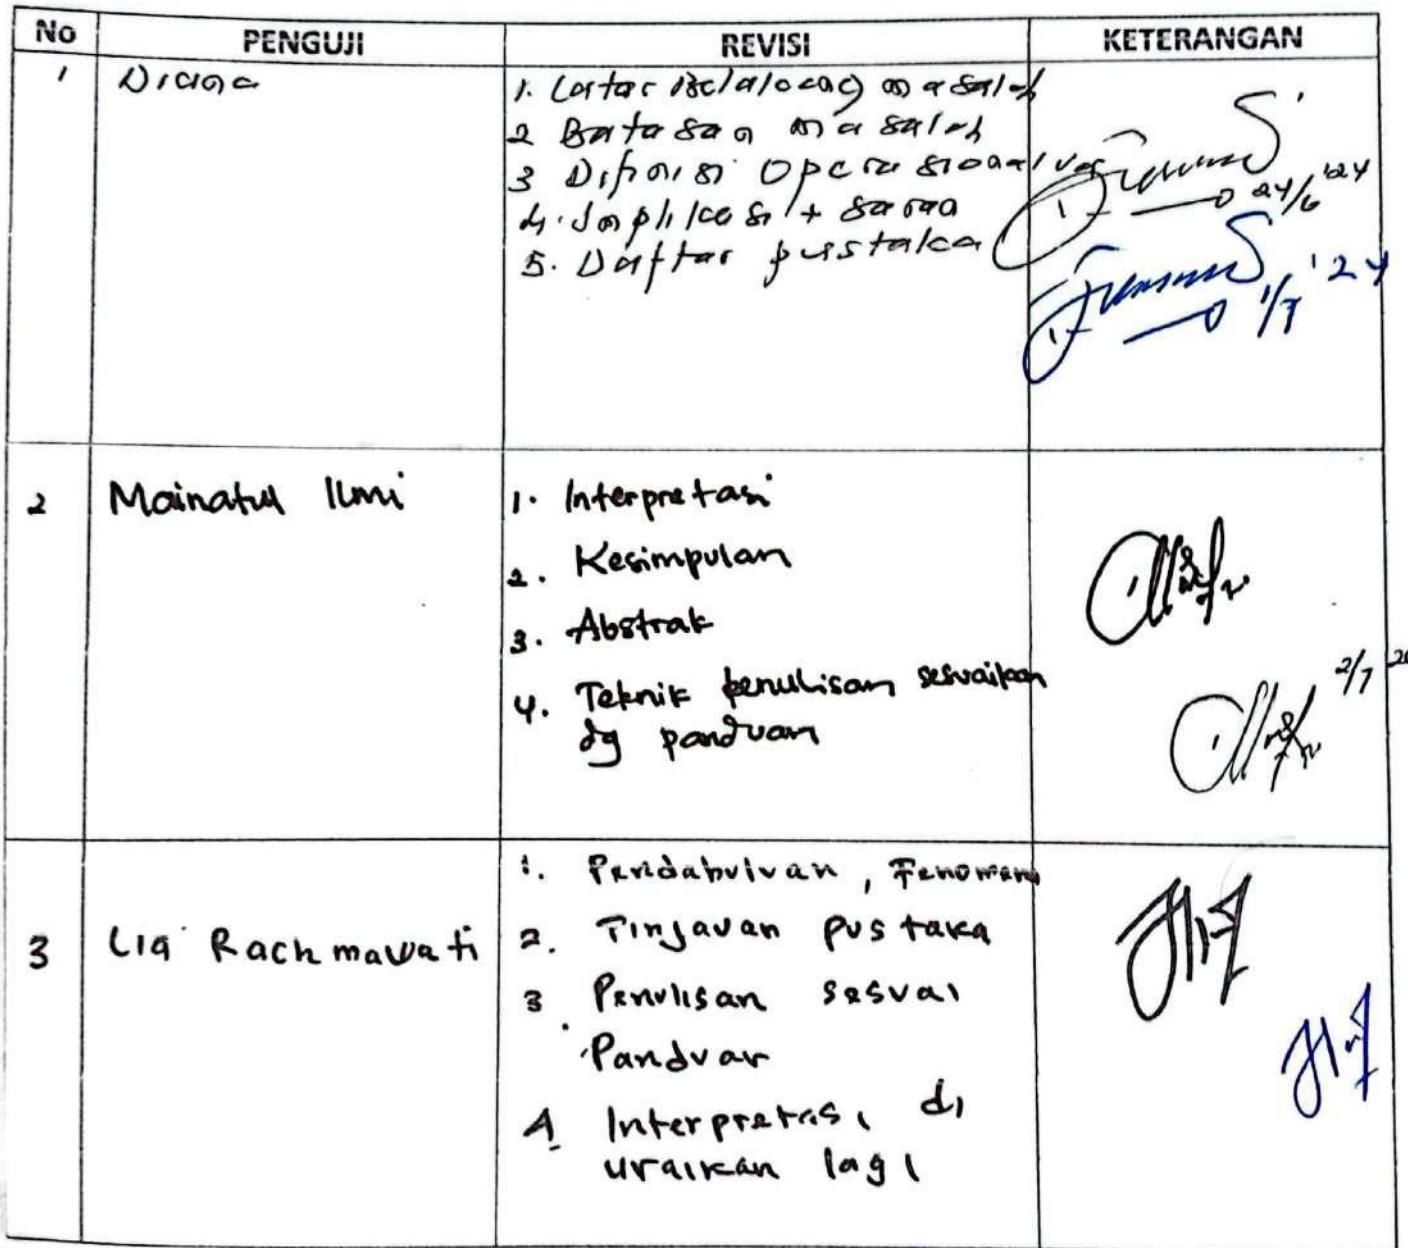 No PENGUJI REVISI KETERANGAN
1 Diana
1. Latar Belakang masalah
2 Batasan masalah
3 Difinisi Operasional var
4. Implikasi + saran
5. Daftar pustaka
24/6 '24
1/7 '24
2 Mainatul Ilmi
1. Interpretasi
2. Kesimpulan
3. Abstrak
4. Teknik penulisan sesuaikan
dg panduan
2/7
3 Lia Rachmawati
1. Pendahuluan, Fenomena
2. Tinjauan pustaka
3 Penulisan sesuai
Panduan
4 Interpretasi di
uraikan lagi